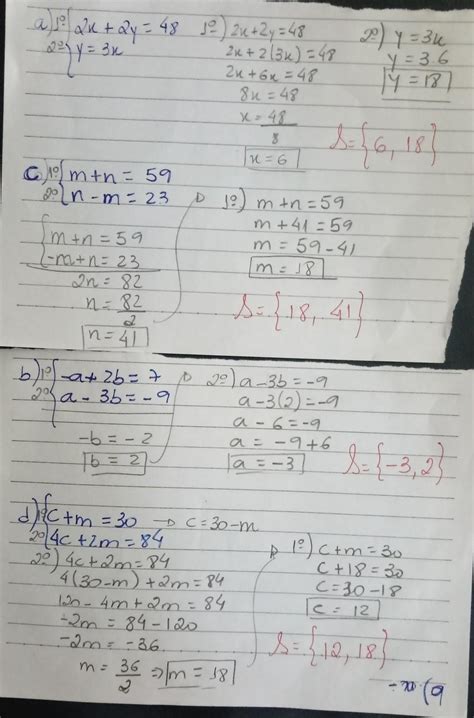 a) 1º { 2x + 2y = 48
2º { y = 3x
1º) 2x + 2y = 48
2x + 2(3x) = 48
2x + 6x = 48
8x = 48
x = 48
8
x = 6
2º) y = 3x
y = 3.6
y = 18
S = {6, 18}
c) 1º { m + n = 59
2º { n - m = 23
{ m + n = 59
-m + n = 23
2n = 82
n = 82
2
n = 41
1º) m + n = 59
m + 41 = 59
m = 59 - 41
m = 18
S = {18, 41}
b) 1º { -a + 2b = 7
2º { a - 3b = -9
-b = -2
b = 2
2º) a - 3b = -9
a - 3(2) = -9
a - 6 = -9
a = -9 + 6
a = -3
S = {-3, 2}
d) 1º { c + m = 30 → c = 30 - m
2º { 4c + 2m = 84
2º) 4c + 2m = 84
4(30 - m) + 2m = 84
120 - 4m + 2m = 84
-2m = 84 - 120
-2m = -36
m = 36 ⇒ m = 18
2
1º) c + m = 30
c + 18 = 30
c = 30 - 18
c = 12
S = {12, 18}